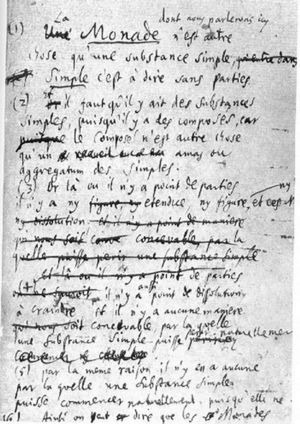 La dont nous parlerons icy
(1) Une Monade n'est autre
chose qu'une substance simple, qui entre dans
Simple c'est à dire sans parties
(2) Et il faut qu'il y ait des substances
simples, puisqu'il y a des composés, car
puisque le composé n'est autre chose
qu'un amas ou
aggregatum des simples.
(3) Or là où il n'y a point de parties ny
il n'y a ny figure ny etendue ny figure, et ces
ny dissolution et il n'y a point de maniere
soit concevable par la
quelle puisse perir une substance simple
et là où il n'y a point de parties
il n'y a point de dissolution
à craindre et il n'y a aucune maniere
soit concevable par laquelle
une substance simple puisse naturellement
(5) par la même raison il n'y en a aucune
par la quelle une substance simple
puisse commencer naturellement, puisqu'elle ne
(6) Ainsi on peut dire que les Monades